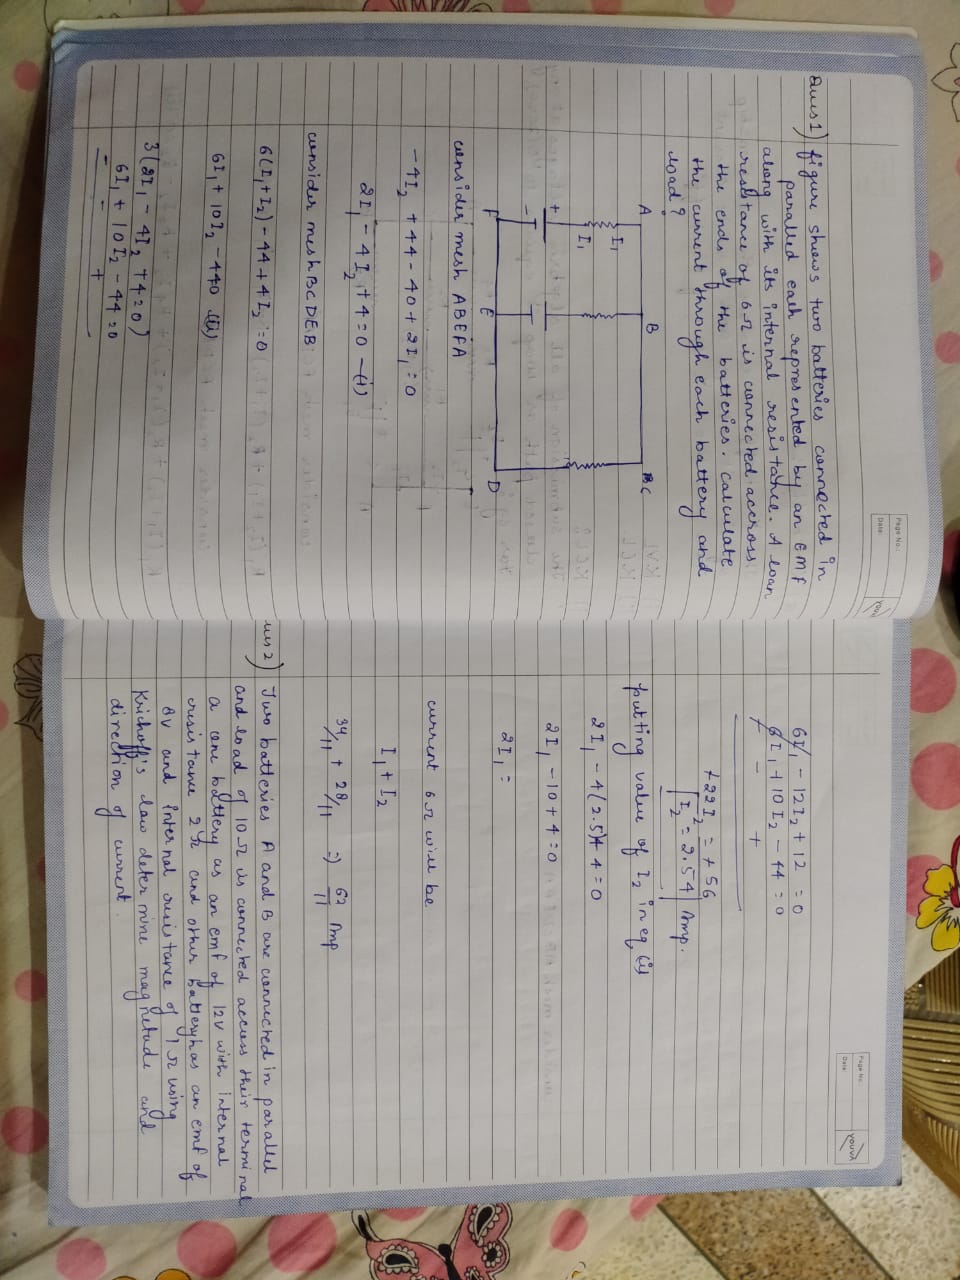 Page No.:
Date:
youva
Ques 1) figure shows two batteries connected in
paralled each represented by an EMF
along with its internal resistance. A loan
resistance of 6Ω is connected accross
the ends of the batteries. calculate
the current through each battery and
load?
A B BC
I1
I1
+
-
F E D
consider mesh ABEFA
-4I2 + 44 - 40 + 2I1 = 0
2I1 - 4I2 + 4 = 0 -(i)
consider mesh BCDEB
6(I1+I2) - 44 + 4I2 = 0
6I1 + 10I2 - 440 (ii)
3(2I1 - 4I2 + 4=0)
6I1 + 10I2 - 44=0
- - +
Page No.:
Date:
youva
6I1 - 12I2 + 12 = 0
6I1 + 10I2 - 44 = 0
- - +
+22I2 = +56
I2 = 2.54 Amp.
putting value of I2 in eq (i)
2I1 - 4(2.5)+ 4 = 0
2I1 - 10 + 4 = 0
2I1 =
current 6Ω will be
I1 + I2
34/11 + 28/11 => 62/11 Amp
ues 2) Two batteries A and B are connected in parallel
and load of 10Ω is connected access their terminal
a one battery as an emf of 12V with internal
resistance 2Ω and other battery has an emf of
8V and internal resistance of 1Ω using
Krichoff's law determine magnetude and
direction of current.